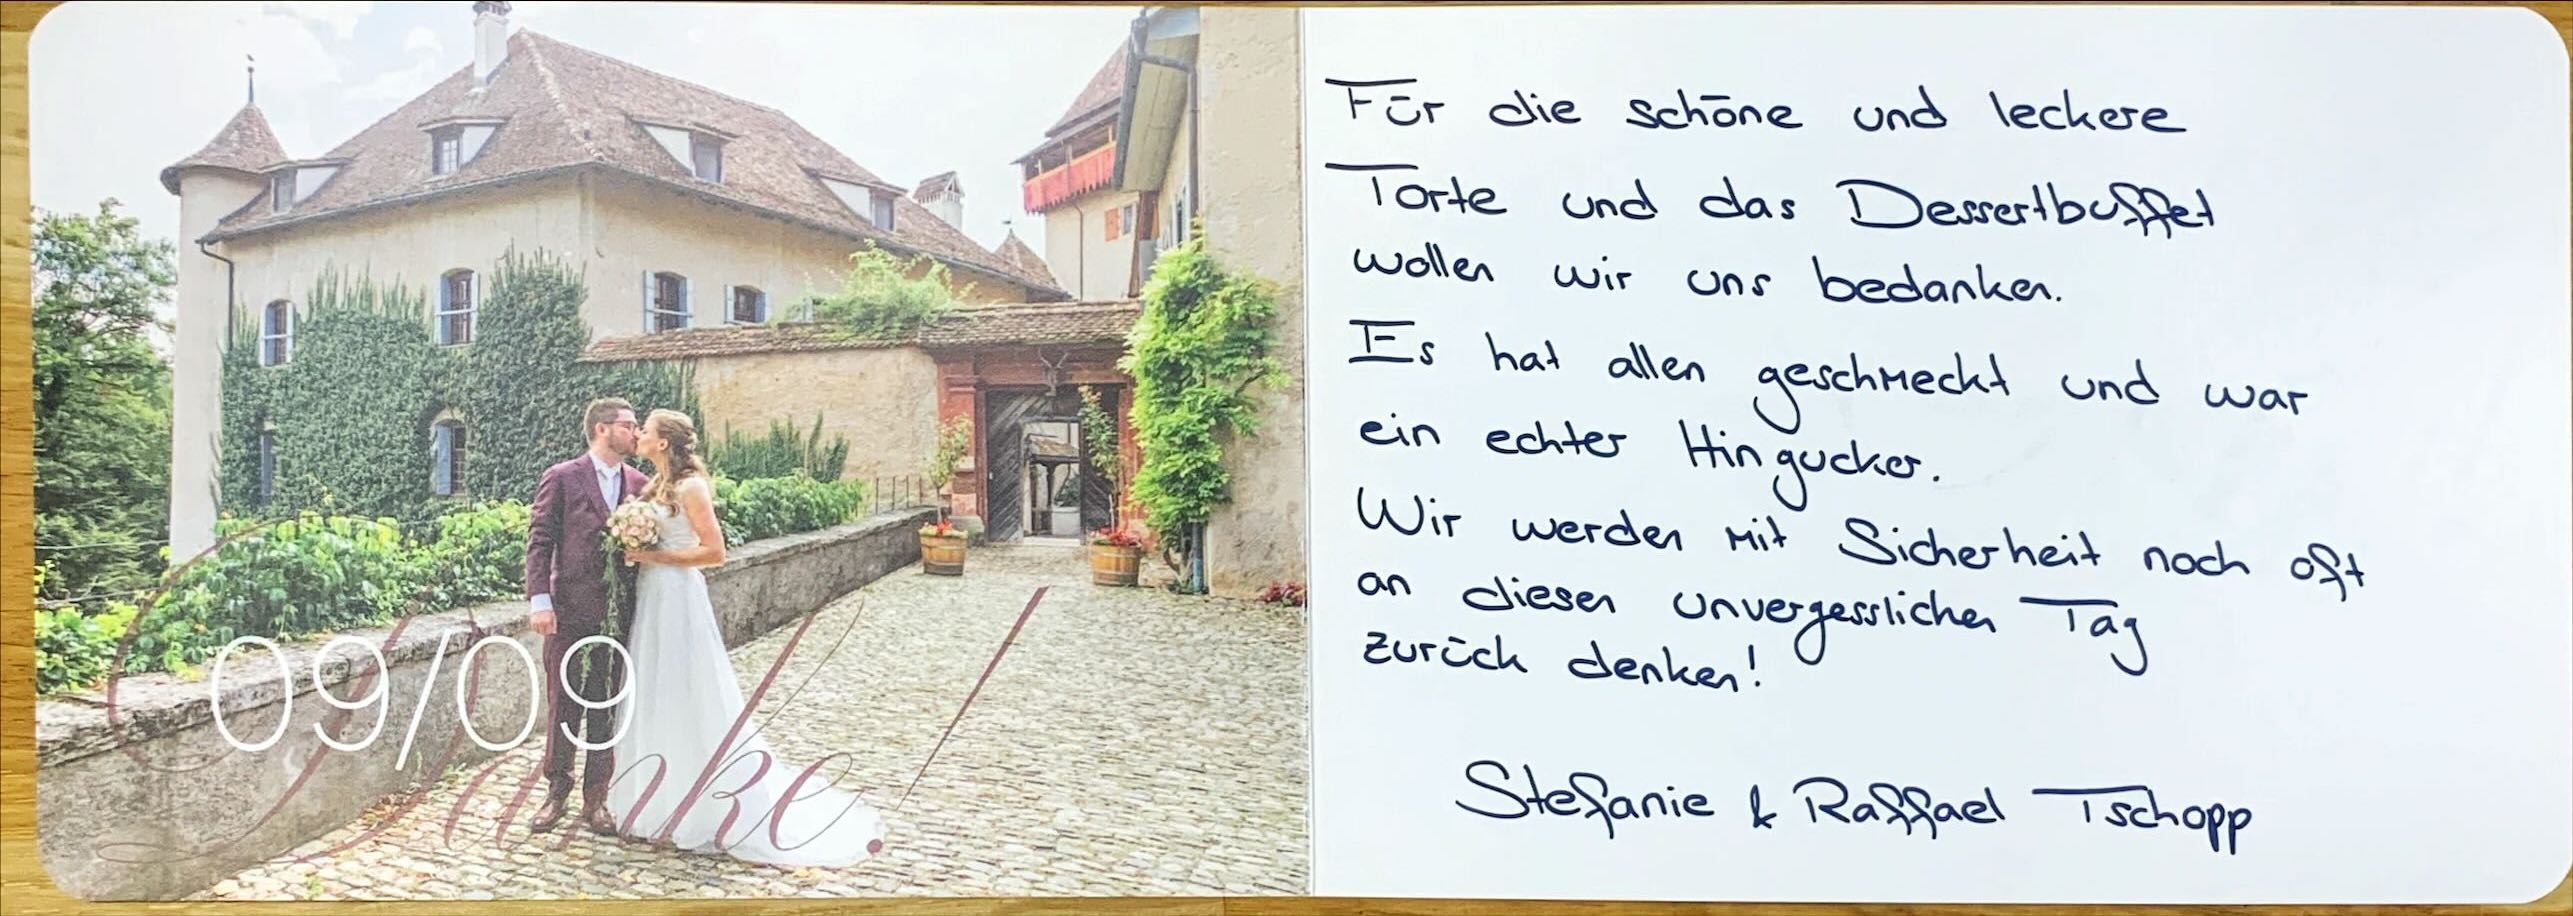 09/09
Danke!
Für die schöne und leckere
Torte und das Dessertbuffet
wollen wir uns bedanken.
Es hat allen geschmeckt und war
ein echter Hingucker.
Wir werden mit Sicherheit noch oft
an diesen unvergesslichen Tag
zurück denken!
Stefanie & Raffael Tschopp